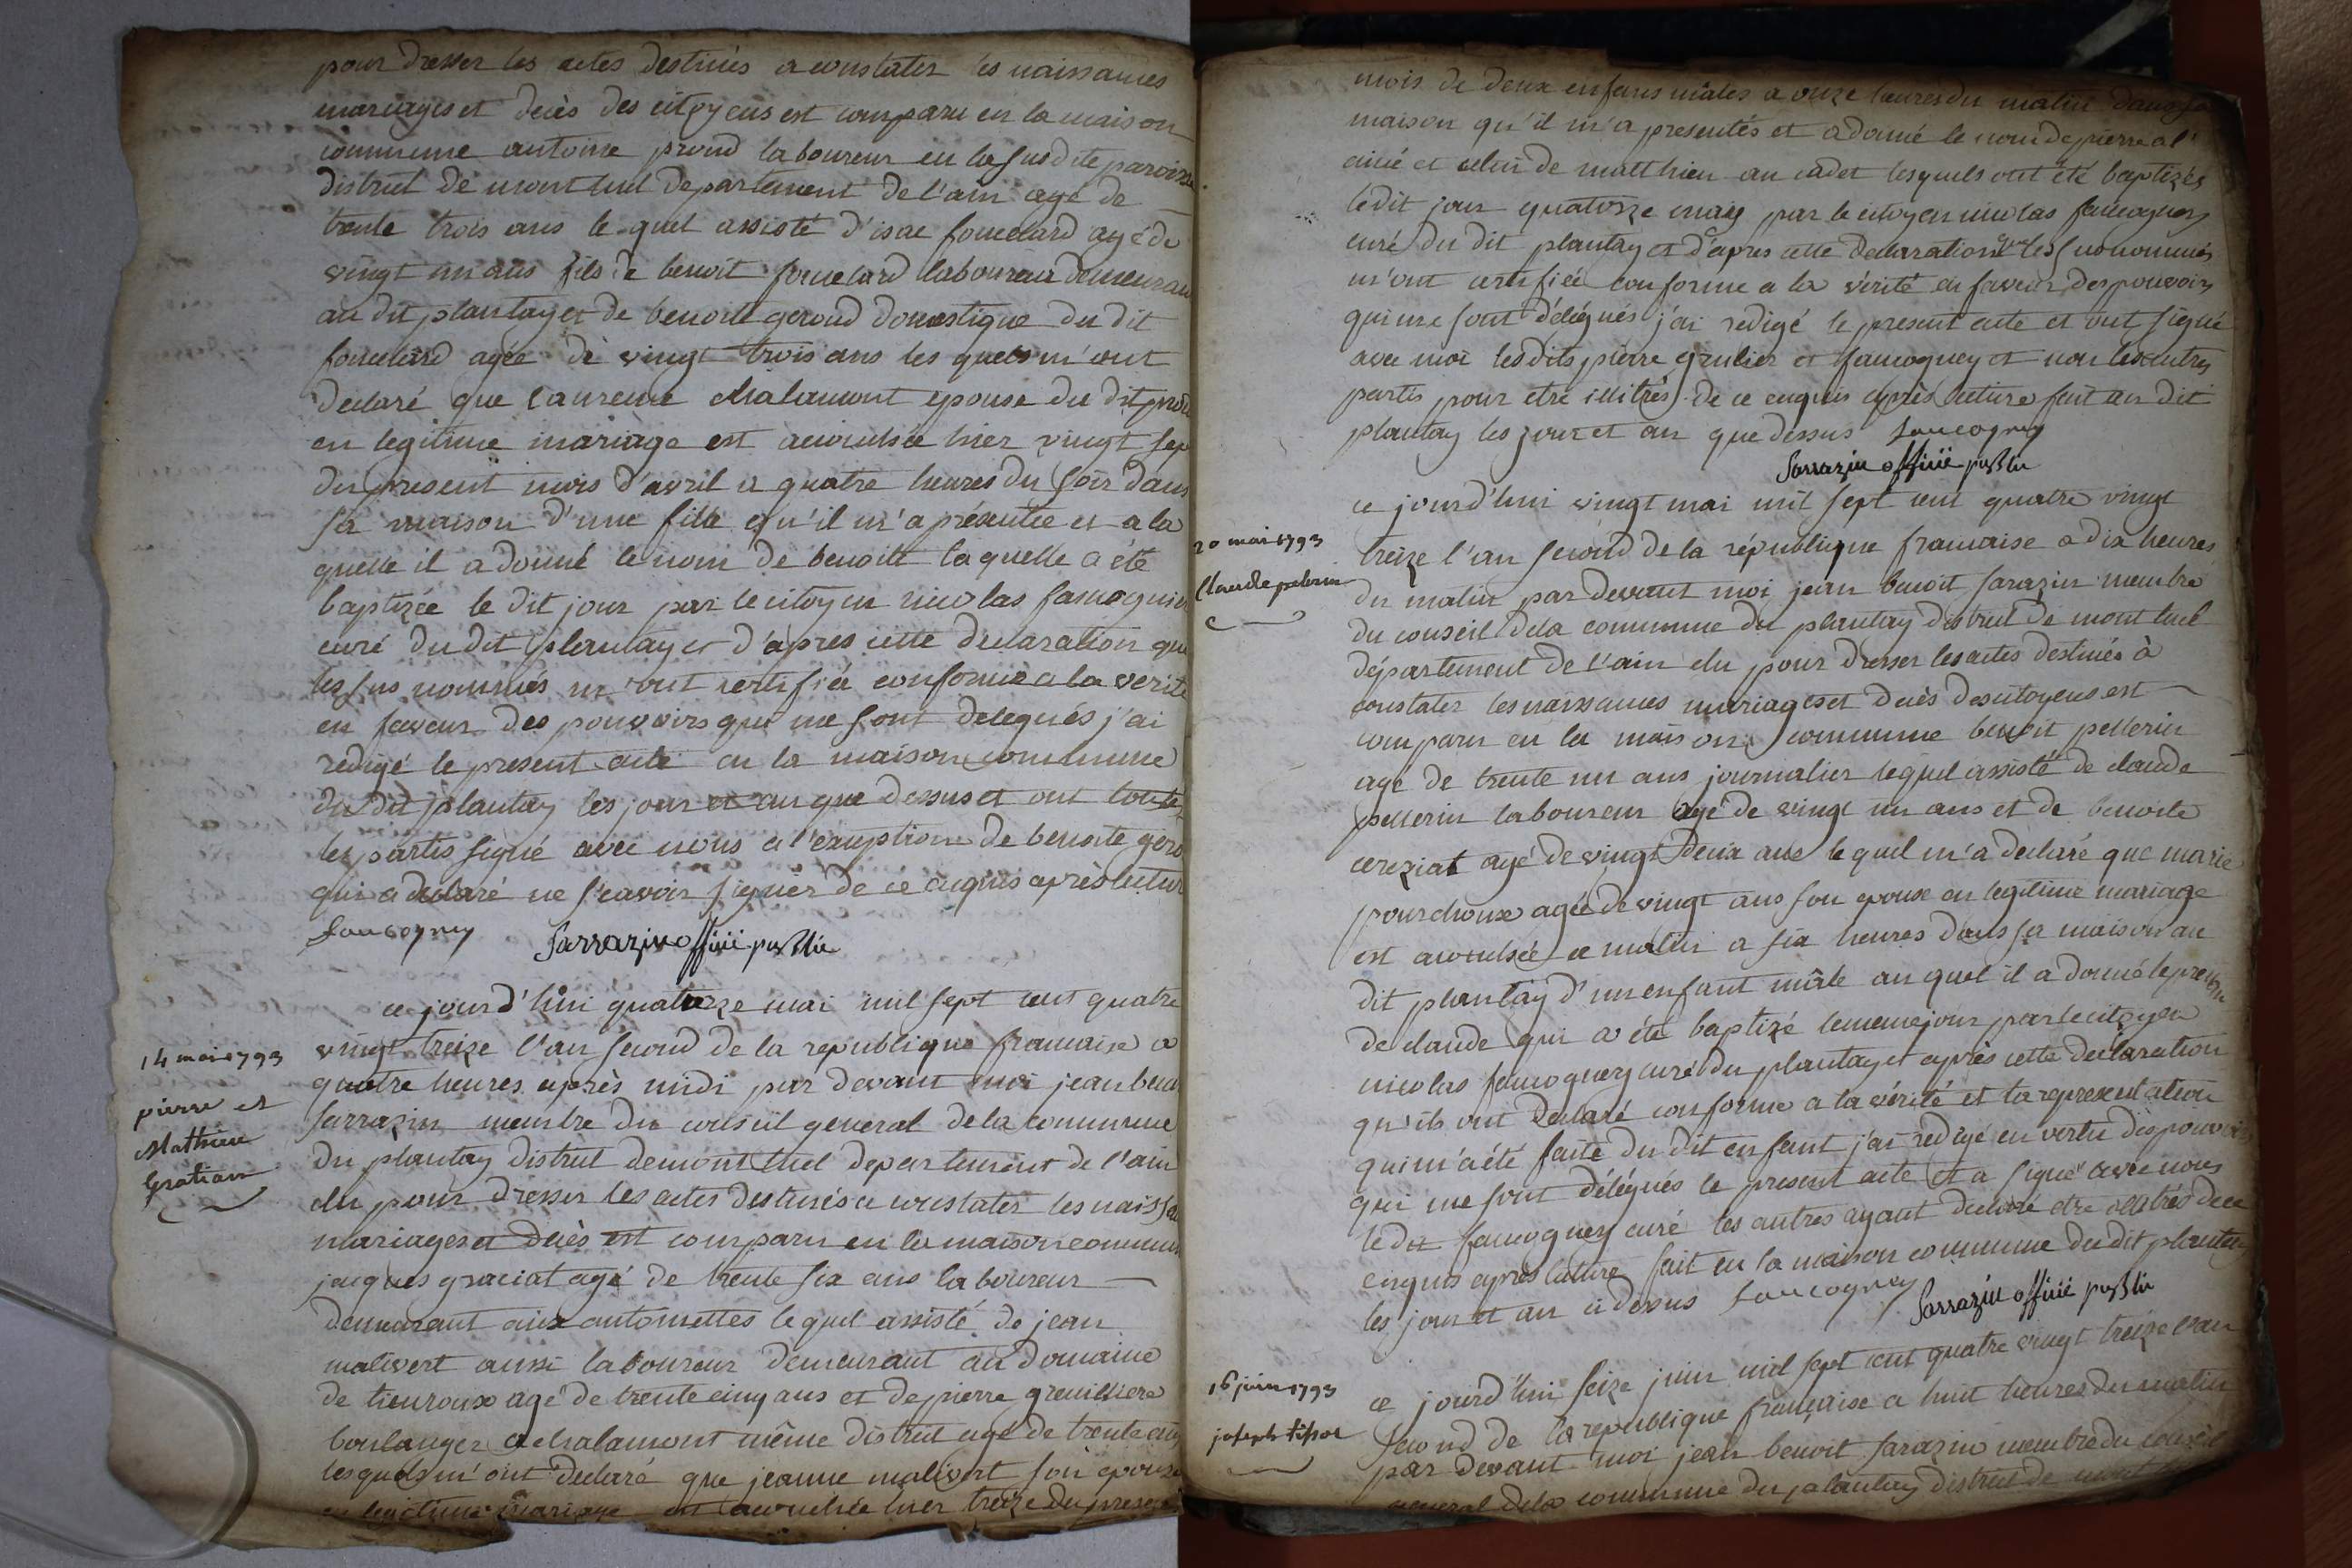 pour dresser les actes destinés a constater les naissances
mariages et decès des citoyens est comparu en la maison
commune antoine proud laboureur en la susdite paroisse
district de mont luel departement de l'ain agé de
trente trois ans le quel assisté d'isac fouelard agé de
vingt un ans fils de benoit fouelard laboureur demeurau
au dit plantay et de benoite geroud domestique du dit
fouelard agée de vingt trois ans les quels m'ont
declaré que laurence chalamont epouse du dit proud
en legitime mariage est accouchée hier vingt sep
du present mois d'avril a quatre heures du soir dans
sa maison d'une fille qu'il m'a présentée et a la
quelle il a donné le nom de benoite laquelle a été
baptizée le dit jour par le citoyen nicolas faucogney
curé du dit plantay et d'apres cette declaration que
les sus nommés m'ont certifiée conforme a la verité
en faveur des pouvoirs qui me sont delegués j'ai
redigé le present acte en la maison commune
du dit plantay les jour et an que dessus et ont toute
les partis signé avec nous a l'exception de benoite gero
qui a declaré ne scavoir signer de ce enquis après lectur
faucogney sarrazin officié publie
14 mai 1793
pierre et
Mathieu
Gratian
ce jourd'hui quatorze mai mil sept cent quatre
vingt treize l'an second de la republique francaise a
quatre heures après midi par devant moi jean benoi
sarrazin membre du conseil general de la commune
du plantay distrut de mont luel departement de l'ain
elu pour dresser les actes destinés a constater les naissan
mariages et decès est comparu en la maison commun
jacques graciat agé de trente six ans laboureur
demeurant aux antoinettes lequel assisté de jean
malivert aussi laboureur demeurant au domaine
de tieuroux agé de trente cinq ans et de pierre greuilliere
boulanger a chalamont même distrut agé de trente cinq
lesquels m'ont declaré que jeanne malivert son epouse
en legitime mariage est accouchée hier treize du present
mois de deux enfans mâles a onze heures du matin dans sa
maison qu'il m'a presentés et a donné le nom de pierre a l'
ainé et celui de matthieu au cadet lesquels ont été baptizés
ledit jour quatorze may par le citoyen nicolas faucogney
curé du dit plantay et d'apres cette declaration que les susnommés
m'ont certifiée conforme a la vérité en faveur des pouvoirs
qui me sont délégués j'ai redigé le present acte et ont signé
avec moi les dits pierre grulier et faucogney et non les autres
partis pour etre illitrés de ce enquis après lecture fait au dit
plantay les jour et an que dessus faucogney
sarrazin officié publie
20 mai 1793
Claude pelerin
ce jourd'hui vingt mai mil sept cent quatre vingt
treize l'an second de la république francaise a dix heures
du matin par devant moi jean benoit sarazin membre
du conseil dela commune du plantay distrut de mont luel
département de l'ain elu pour dresser les actes destinés à
constater les naissances mariages et decès des citoyens est
comparu en la maison commune benoit pellerin
agé de trente un ans journalier lequel assisté de claude
pellerin laboureur agé de vingt un ans et de benoite
cereziat agé de vingt deux ans lequel m'a declaré que marie
pourchoux agée de vingt ans son epouse en legitime mariage
est accouchée ce matin a six heures dans sa maison au
dit plantay d'un enfant mâle au quel il a donné le prenom
de claude qui a été baptizé le meme jour par le citoyen
nicolas faucogney curé du plantay et après cette declaration
qu'ils ont declaré conforme a la vérité et la representation
qui m'a été faite du dit enfant j'ai redigé en vertu des pouvoirs
qui me sont délégués le present acte et a signé avec nous
le dit faucogney curé les autres ayant declaré etre illitrés de ce
enquis après lecture fait en la maison commune du dit plantay
les jour et an ci dessus faucogney sarrazin officié publie
16 juin 1793
joseph tissot
ce jourd'hui seize juin mil sept cent quatre vingt treize l'an
second de la republique française a huit heures du matin
par devant moi jean benoit sarazin membre du conseil
general dela commune du plantay distrut de mont